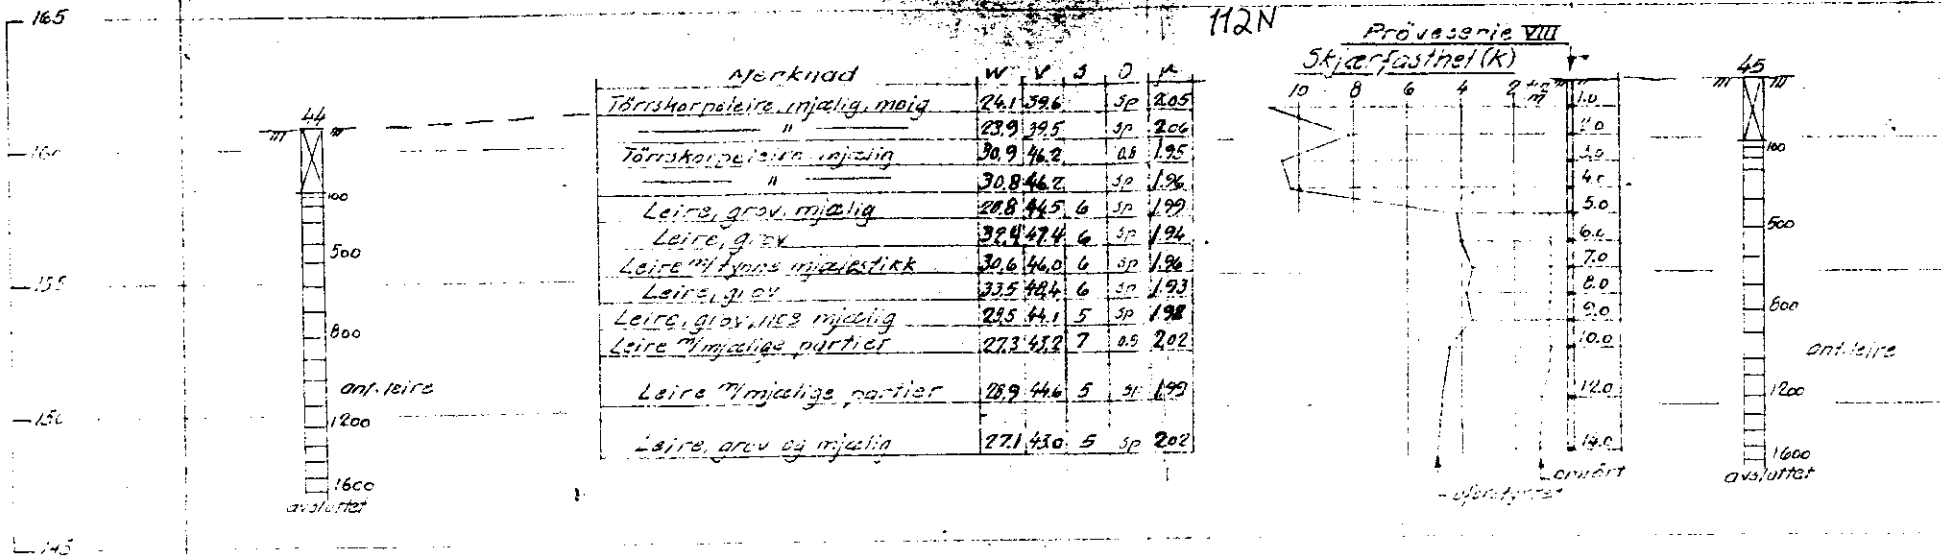 165
112N
Pröveserie VIII
Skjærfasthet (k)
10 8 6 4 2 t/m²
44
45
Merknad W V S O γ
Törrskorpeleire, mjælig, moig 24.1 39.6 sp 2.05
" 23.9 39.5 sp 2.06
Törrskorpeleire mjælig 30.9 46.2 0.8 1.95
" 30.8 46.2 sp 1.96
Leire, grov, mjælig 28.8 44.5 6 sp 1.99
Leire, grov 32.4 47.4 6 sp 1.94
Leire m/tynne mjælestikk 30.6 46.0 6 sp 1.96
Leire, grov 33.5 48.4 6 sp 1.93
Leire, grov, noe mjælig 29.5 44.1 5 sp 1.98
Leire m/mjælige partier 27.3 43.2 7 0.9 2.02
Leire m/mjælige partier 28.9 44.6 5 sp 1.99
Leire, grov og mjælig 27.1 43.0 5 sp 2.02
160
155
150
145
100
500
800
ant. leire
1200
1600
avsluttet
1.0
2.0
3.0
4.0
5.0
6.0
7.0
8.0
9.0
10.0
12.0
14.0
omrört
uforstyrret
100
500
800
ant. leire
1200
1600
avsluttet